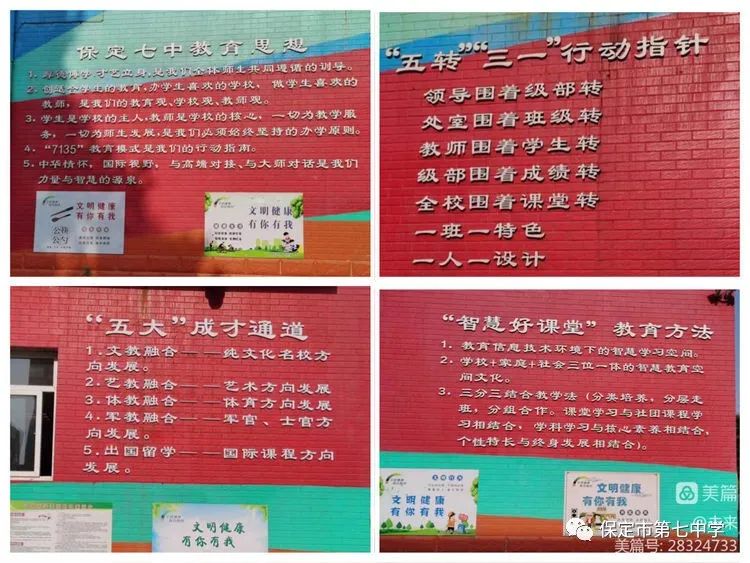 保定七中教育思想
1. 厚德博学才艺立身,是我们全体师生共同遵循的训导。
2. 创适合学生的教育,办学生喜欢的学校, 做学生喜欢的
教师, 是我们的教育观、学校观、教师观。
3. 学生是学校的主人,教师是学校的核心, 一切为教学服
务, 一切为师生发展,是我们必须始终坚持的办学原则。
4. “7135”教育模式是我们的行动指南。
5. 中华情怀, 国际视野, 与高端对接、与大师对话是我们
力量与智慧的源泉。
文明健康
有你有我
公筷
公勺
文明健康
有你有我
“五转”“三一”行动指针
领导围着级部转
处室围着班级转
教师围着学生转
级部围着成绩转
全校围着课堂转
一班一特色
一人一设计
“五大”成才通道
1. 文教融合——纯文化名校方
向发展。
2. 艺教融合——艺术方向发展
3. 体教融合——体育方向发展
4. 军教融合——军官、士官方
向发展。
5. 出国留学——国际课程方向
发展。
文明健康
有你有我
“智慧好课堂” 教育方法
1. 教育信息技术环境下的智慧学习空间。
2. 学校+家庭+社会三位一体的智慧教育空
间文化。
3. 三分三结合教学法(分类培养, 分层走
班, 分组合作。课堂学习与社团课程学
习相结合, 学科学习与核心素养相结合,
个性特长与终身发展相结合)。
文明健康
有你有我
文明健康
有你有我
美篇
@未来
保定市第七中学
美篇号: 28324733